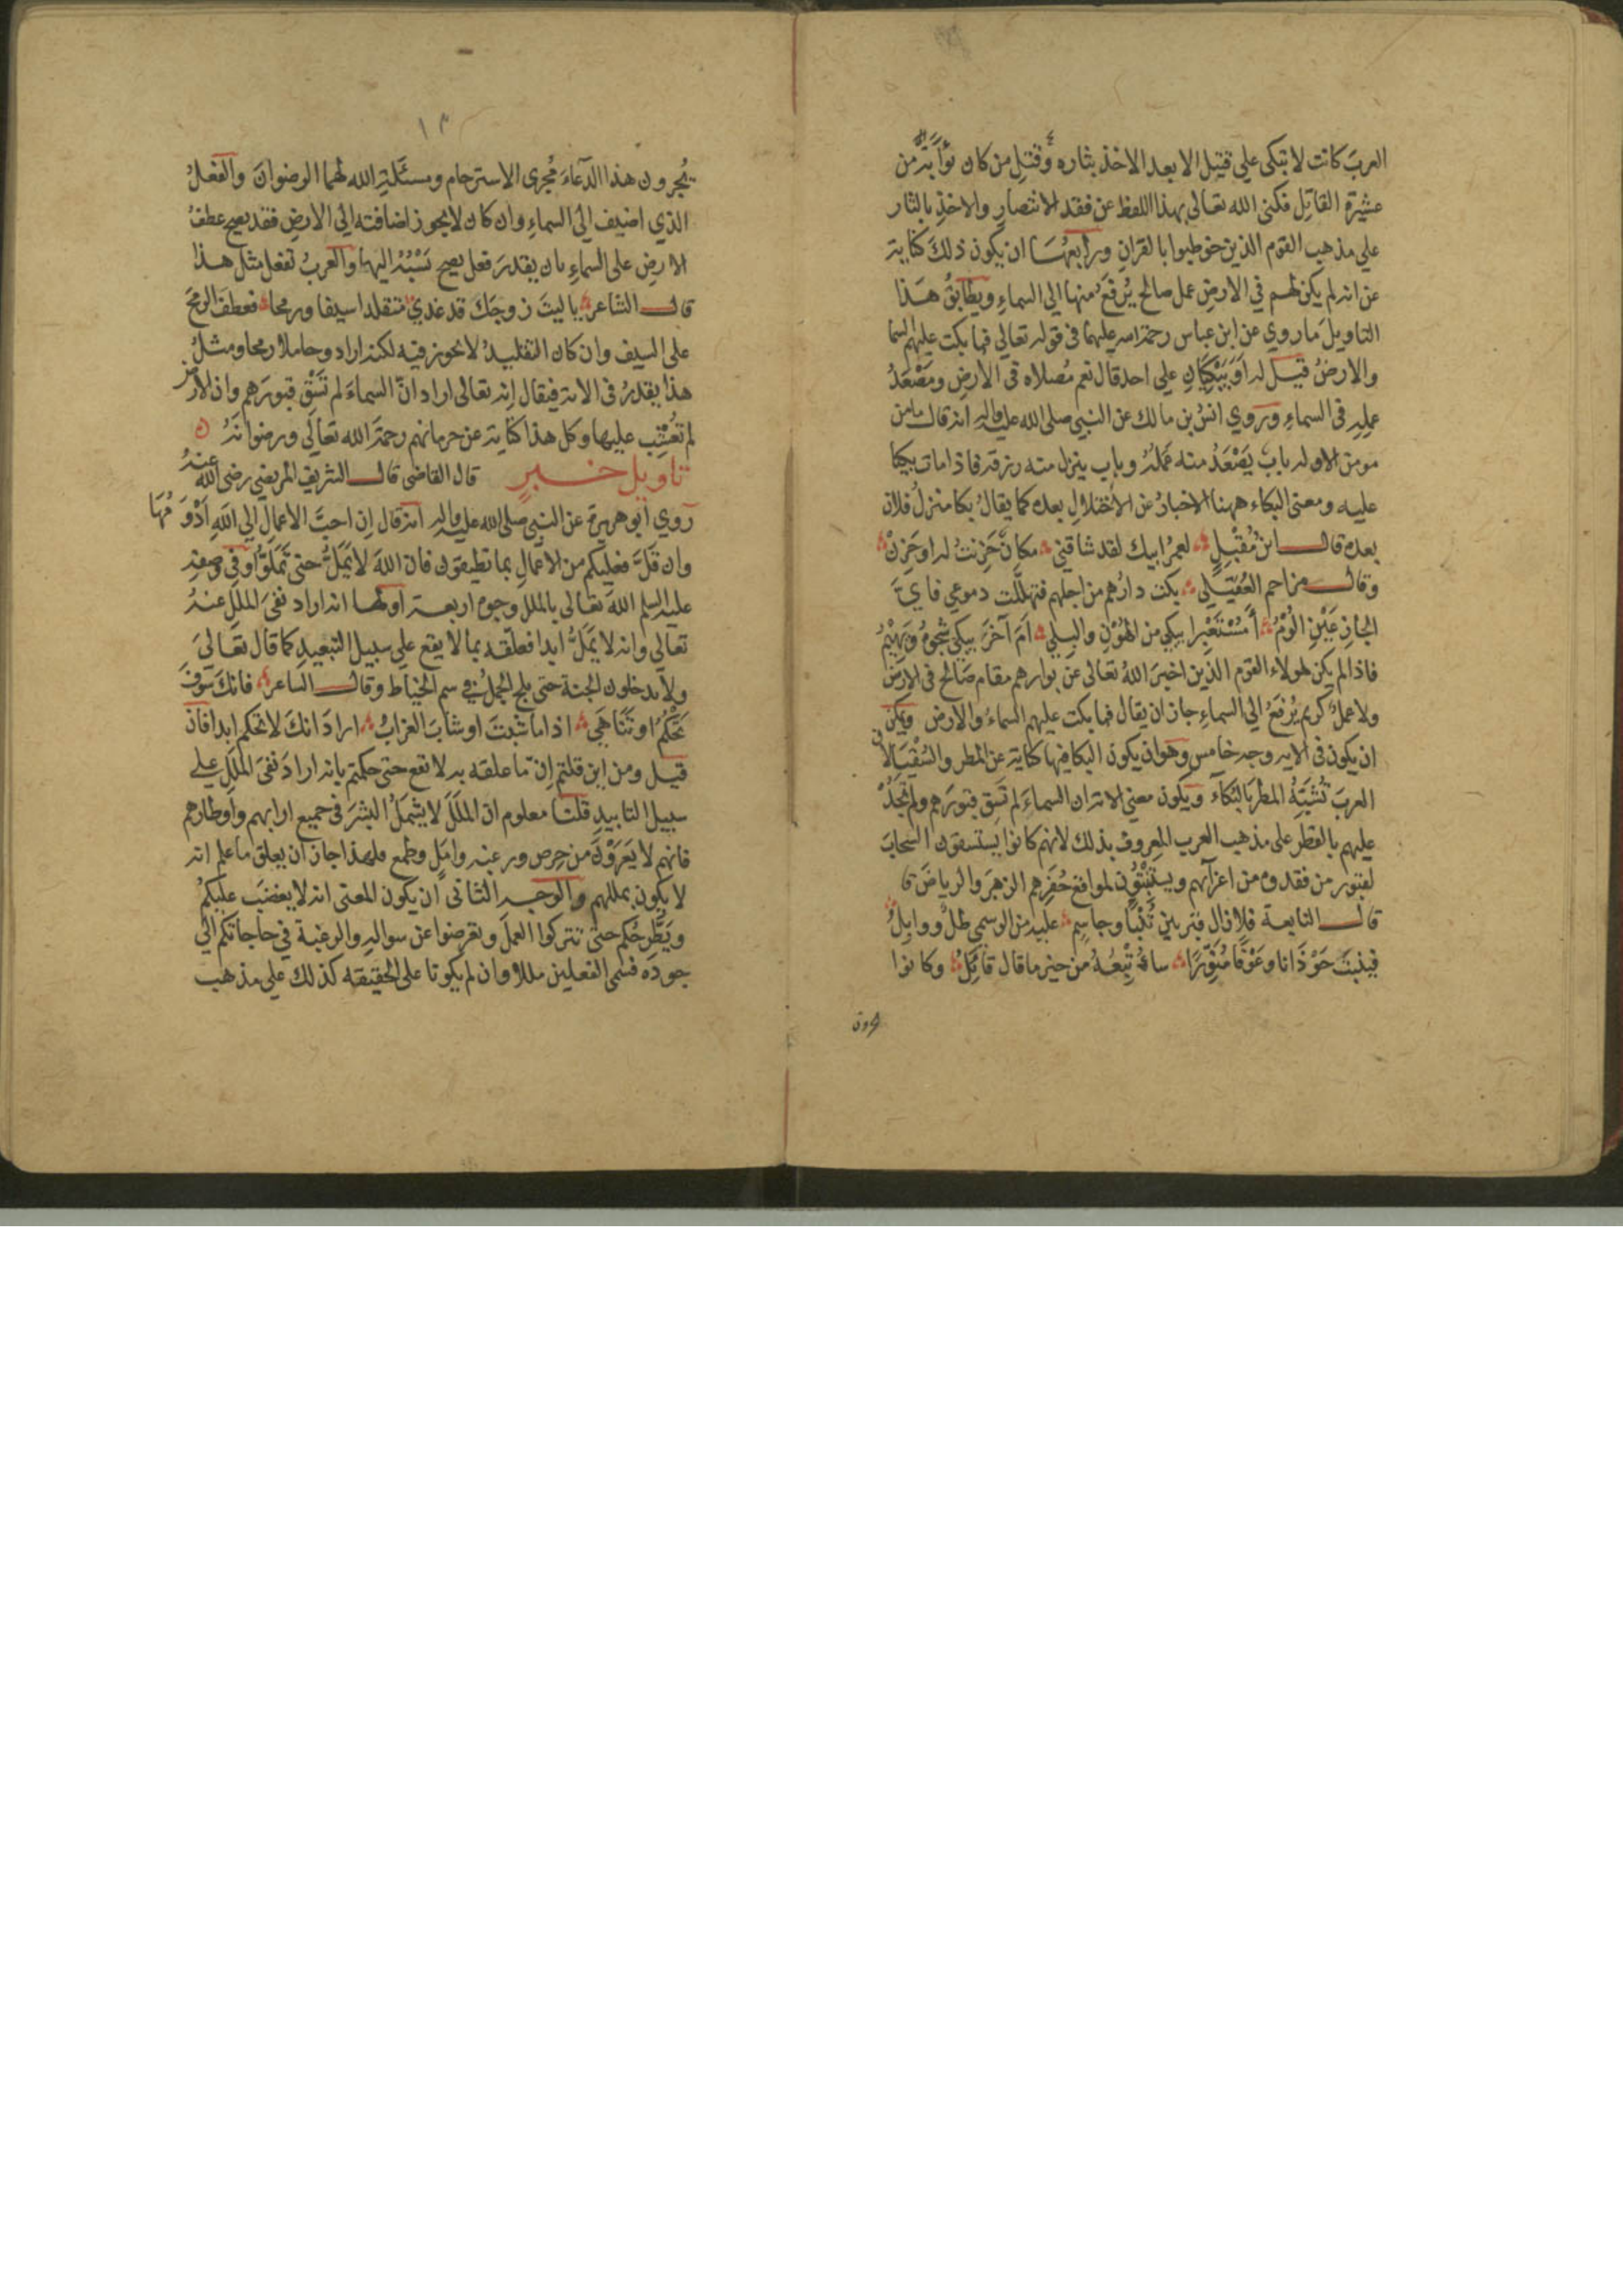 العربَ كانت لا تبكى علي قتيل الا بعد الاخذ بثاره وقتلِ من كان بواءً به من
عشيرة القاتِل فكنى الله تعالى بهذا اللفظ عن فقد الانتصارِ والاخذِ بالثار
علي مذهب القوم الذين خوطبوا بالقرانِ ورابعها ان يكون ذلك كناية
عن انه لم يكن لهم في الارضِ عمل صالح يُرفَعُ منها الي السماءِ ويطابقُ هذا
التاويلَ ما روي عن ابن عباس رحمة الله عليهما في قوله تعالي فما بكت عليهم السما
والارضُ قيل له اَوَ يَبْكِيَانِ علي احد قال نعم مُصلاه في الارضِ ومَصْعَدُ
عملِهِ في السماءِ وروي انسُ بن مالك عن النبي صلى الله عليه واله انه قال ما من
مومن الا وله باب يَصْعَدُ منه عَمَلُهُ وباب ينزل منه رزقه فاذا مات بكيا
عليه ومعنى البكاء ههنا الاخبارُ عن الاختلالِ بعده كما يقالُ بكا منزلُ فلان
بعده قال ابن مُقْبِلٍ لعمرُ ابيك لقد شاقني مكانٌ حَزِنتُ له او حَزِنْ
وقال مزاحم العُقَيلي بكت دارُهم من اجلهم فتهلَّلت دموعي فاىّ
الجازعَيْنِ الُومُ أمُسْتَعْبِرا يبكي من الهُوْنِ والبِلي اَمَ آخَرَ يبكي شَجْوَهُ ويَهِيْمُ
فاذا لم يكن لهولاء القوم الذين اخبرَ اللهُ تعالى عن بوارهم مقام صَالح في الارض
ولا عملٌ كريم يُرْفَعُ الي السماءِ جاز ان يقال فما بكت عليهم السماءُ والارض ويمكن
ان يكون في الايه وجه خامس وهو ان يكون البكا فيها كناية عن المطر والسُقْيَا لان
العربَ تُشبّهُ المطرَ بالبُكاء ويكون معنى الاية ان السماءَ لم تَسِق قبورَهم ولم تَجُدْ
عليهم بالقطر على مذهب العرب المعروف بذلك لانهم كانوا يستسقون السحابَ
لقبور من فقدوه من اعزآئهم ويستَنْبِتُون لمواقع حُفَرِهم الزهرَ والرياضَ قا
قال النابعة فلا زال قبر بين تُبْنًا وجاسِم عليه من الوسمي طلٌّ ووابِلُ
فينبتَ حَوْذَانا وعَوْفًا مُنَوّرًا سأتْبِعُهُ من خير ما قال قائِلُ وكانوا
يُجرون هذا الدّعآءَ مُجرى الاسترحام ومسئلةِ الله لهما الرضوانَ والفعلُ
الذي اضيف الي السماءِ وان كان لا يجوز اضافته الي الارضِ فقد يصح عطفُ
الارضِ على السماءِ بان يقدرَ فعل يصح نسْبُهُ اليها والعربُ تفعل مثل هذا
قال الشاعر يا ليتَ زوجَكَ قد غدي متقلدا سيفا ورمحا فعطفَ الرمحَ
على السيف وان كان التقليدُ لا يجوز فيه لكنه اراد وحاملا رمحا ومثلُ
هذا يقدرُ في الاية فيقال انه تعالى اراد انّ السماءَ لم تَسْقِ قبورَهم وان الارض
لم تُعْشِب عليها وكل هذا كناية عن حرمانهم رحمةَ الله تعالَي ورضوانَهُ
تاويل خبر قال القاضى قال الشريف المرتضي رضى الله عنه
روي ابو هريرة عن النبي صلى الله عليه واله انه قال اِن احبَّ الاعمالِ الي اللهِ اَدْوَمُهَا
وان قَلَّ فعليكم من الاعمالِ بما تطيقون فان اللهَ لا يَمَلُّ حتى تَمَلوُّا وفى وصفه
عليه السلم اللهَ تعالى بالملل وجوه اربعة اولها انه اراد نفىَ المللِ عنهُ
تعالي وانه لا يَمَلُّ ابدا فعلّقه بما لا يقع علي سبيل التبعيدِ كما قال تعالى
ولا يدخلون الجنة حتى يلج الجملُ في سم الخياط وقال الشاعر فانكَ سَوْفَ
تَحْكُمُ او تَنَاهَي اذا ما شِبْتَ او شابَ الغرابُ ارادَ انكَ لا تحكم ابدا فان
قيل ومن اين قلتم اِنّ ما علقه به لا تقع حتى حكمتم بانه ارادَ نفىَ المللِ علي
سبيل التابيدِ قلنا معلوم ان المَلَلَ لا يشمَلُ البشرَ في جميع ارابهم واوطارهم
فانهم لا يَعْرَوْنَ من حِرص ورغبة وامَلٍ وطمع فلهذا جاز ان يعلق ما علم انه
لا يكون بمللهم والوجه الثانى ان يكون المعنى انه لا يغضبَ عليكم
ويَطَّرِحُكم حتىٰ تتركوا العملَ وتعرضوا عن سوالهِ والرغبة في حاجاتكم الي
جودَه فسمى الفعلين مللا وان لم يكونا على الحقيقه كذلك علي مذهب